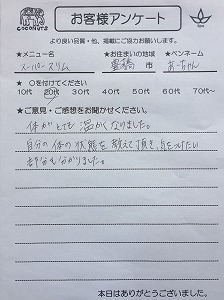 COCONUTS
お客様アンケート
より良い品質・他、掲載にご協力お願いします。
★メニュー名 ★お住まいの地域 ★ペンネーム
スーパースリム 豊橋 市 あーちゃん
★ ○を付けてください
10代 20代 30代 40代 50代 60代 70代～
★ご意見・ご感想をお聞かせください。
体がとても温かくなりました。
自分の体の状態を教えて頂き、気をつけたい
部分も分かりました。
本日はありがとうございました。